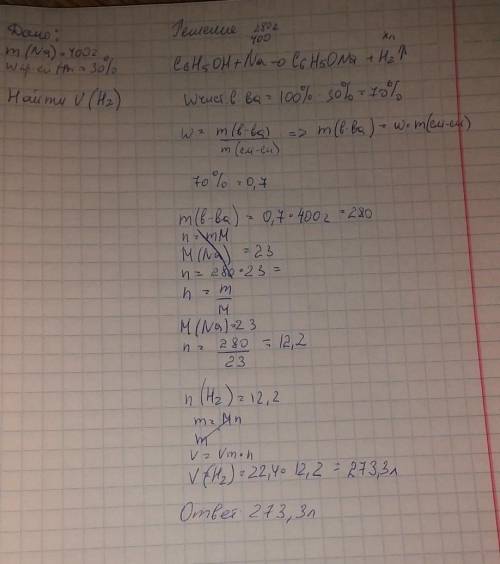 Дано:
m(Na) = 400г
w пр-си Hm = 30%
Найти V(H2)
Решение
280г
400
xл
C6H5OH + Na → C6H5ONa + H2↑
wчист. в-ва = 100% - 30% = 70%
w = m(в-ва) / m(см-си) => m(в-ва) = w • m(см-си)
70% = 0,7
m(в-ва) = 0,7 • 400г = 280
n = mM
M(Na) = 23
n = 280 • 23 =
n = m / M
M(Na) = 23
n = 280 / 23 = 12,2
n(H2) = 12,2
m = Mn
m
V = Vm • n
V(H2) = 22,4 • 12,2 = 273,3л
Ответ 273,3л